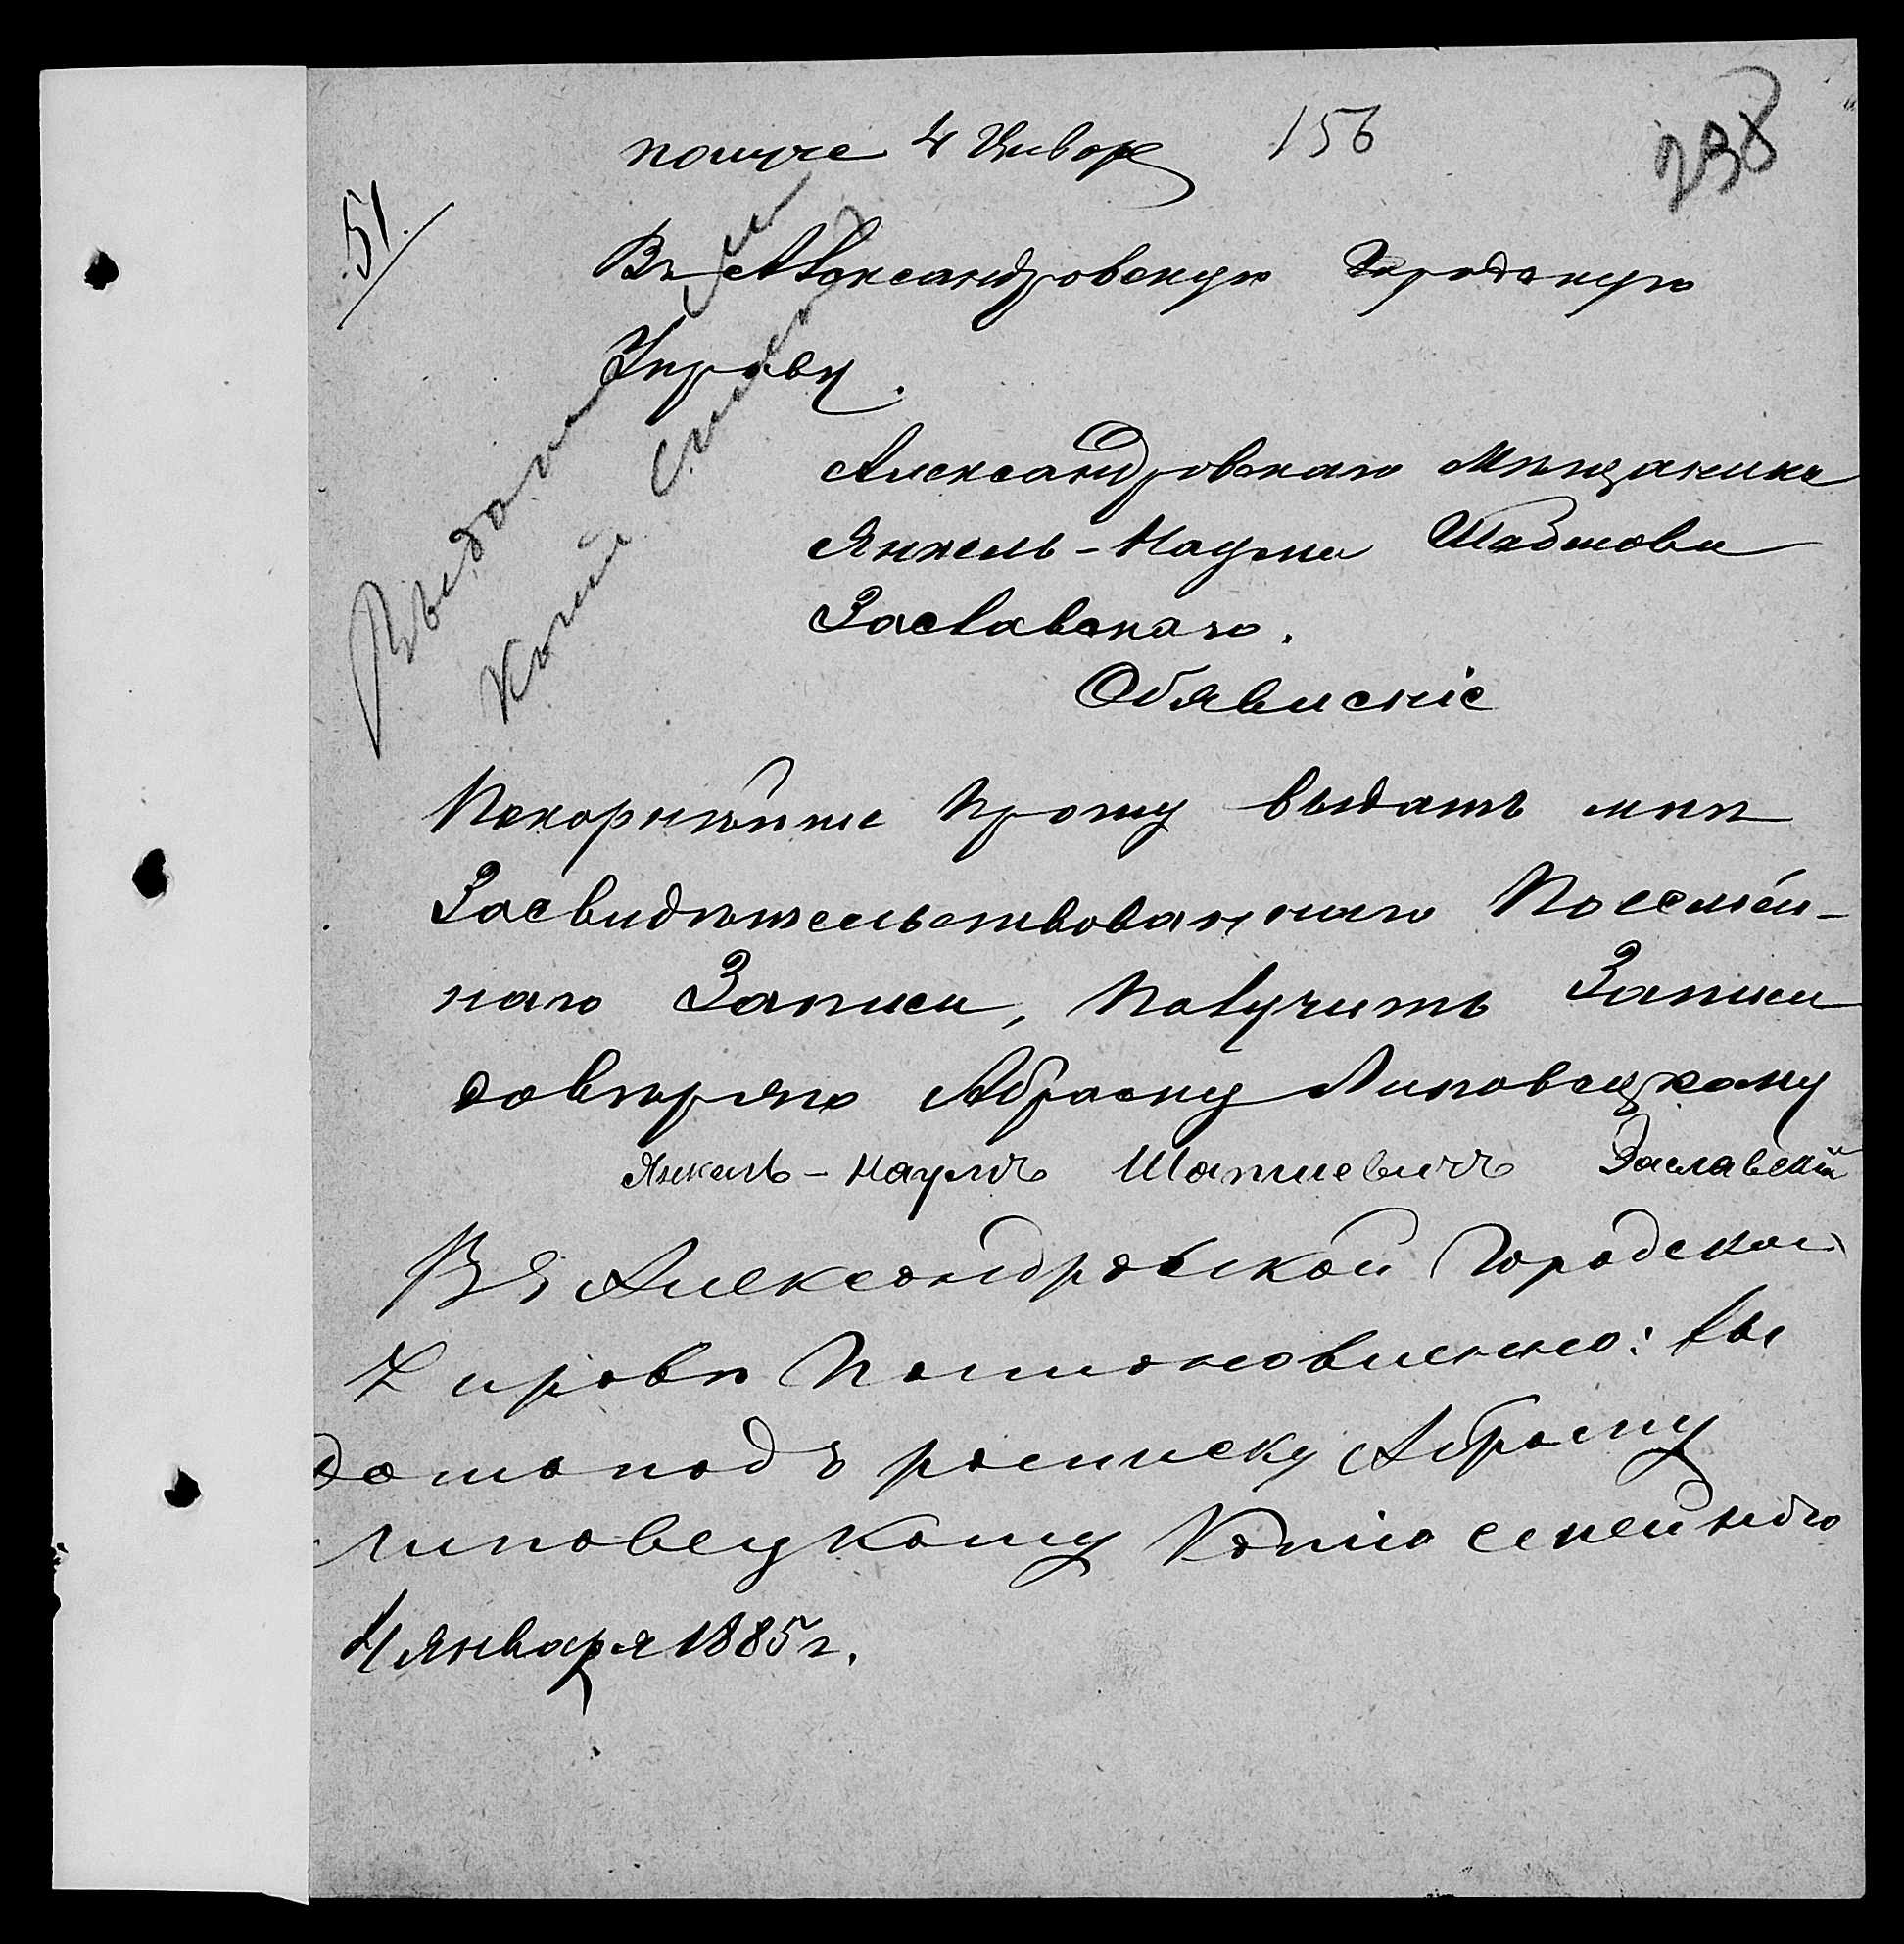 получе 4 Январ 156
238
51.
Въ Александровскую Городскую
Управу.
Александровскаго Мѣщанина
Янкель-Наума
Заславскаго.
Обявленіе
Покорнѣйше прошу выдать мнѣ
Засвидѣтельствованнаго Посемей-
наго Записи, получить Записи
довѣряю Абраму Липовецкому
Янкель-Наумъ Шапшевичъ Заславскій
Въ Александровской Городской
Управѣ постановленно: вы
дать подъ росписку Абраму
Липовецкому Копію семейного
4 Января 1885 г.
Выдать